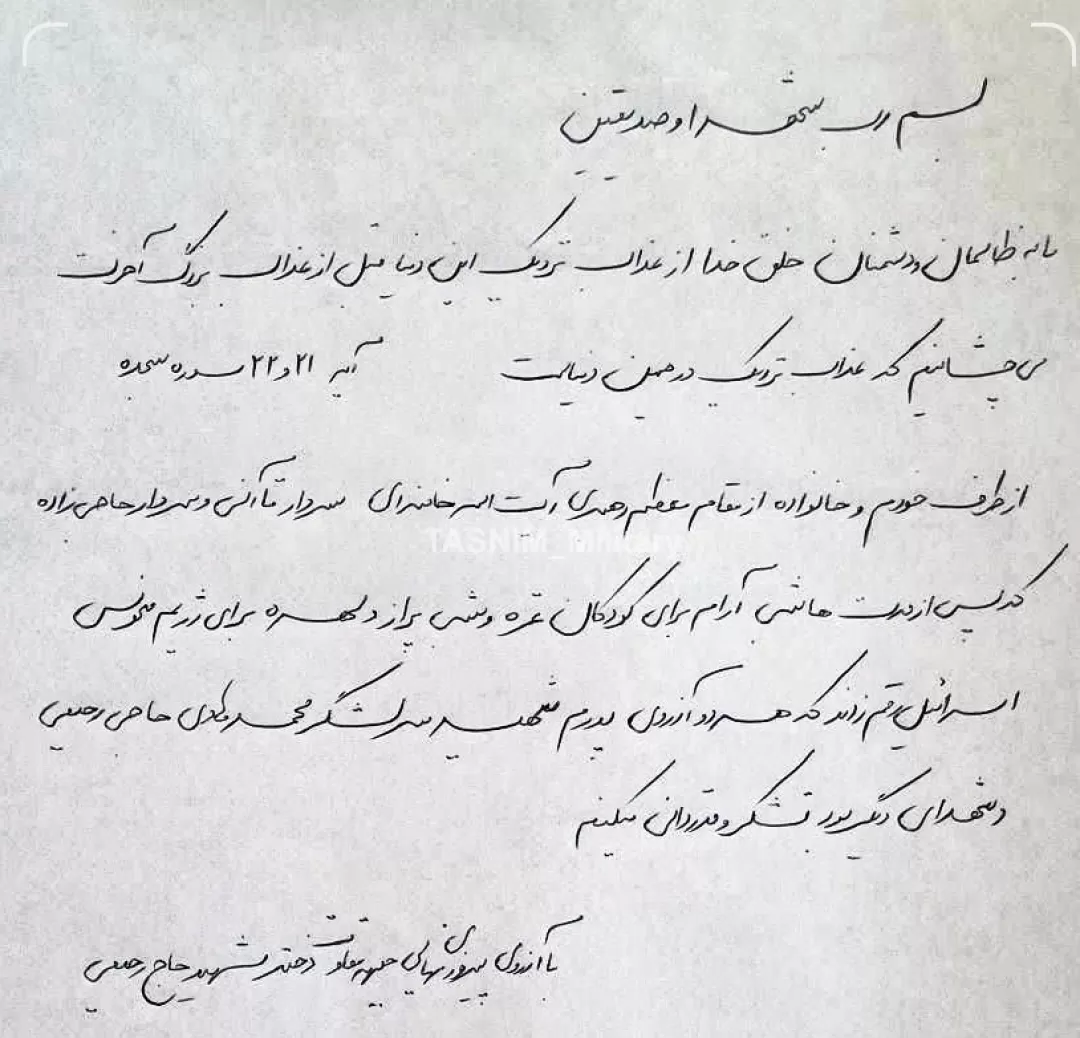 بسم رب شهدا و صدیقین
ما به ظالمان و دشمنان خلق خدا از عذاب نزدیک این دنیا قبل از عذاب بزرگ آخرت
می چشانیم که عذاب نزدیک در همین دنیاست آیه ۲۱ و ۲۲ سوره سجده
از طرف خودم و خانواده از مقام معظم رهبری آیت الله خامنه‌ای سردار قاآنی و سردار حاجی زاده
که پس از مدت ها شبی آرام برای کودکان غزه و شبی پر از دلهره برای رژیم منحوس
اسرائیل رقم زدند که هر دو آرزوی پدرم شهید سرلشگر محمد هادی حاجی رحیمی
و شهدای دیگر بود تشکر و قدردانی میکنیم
با آرزوی پیروزی نهایی جبهه مقاومت دختر شهید حاج رحیمی
TASNIM_Military